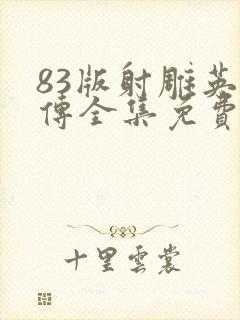 83版射雕英
傳全集免費
十里雲裳